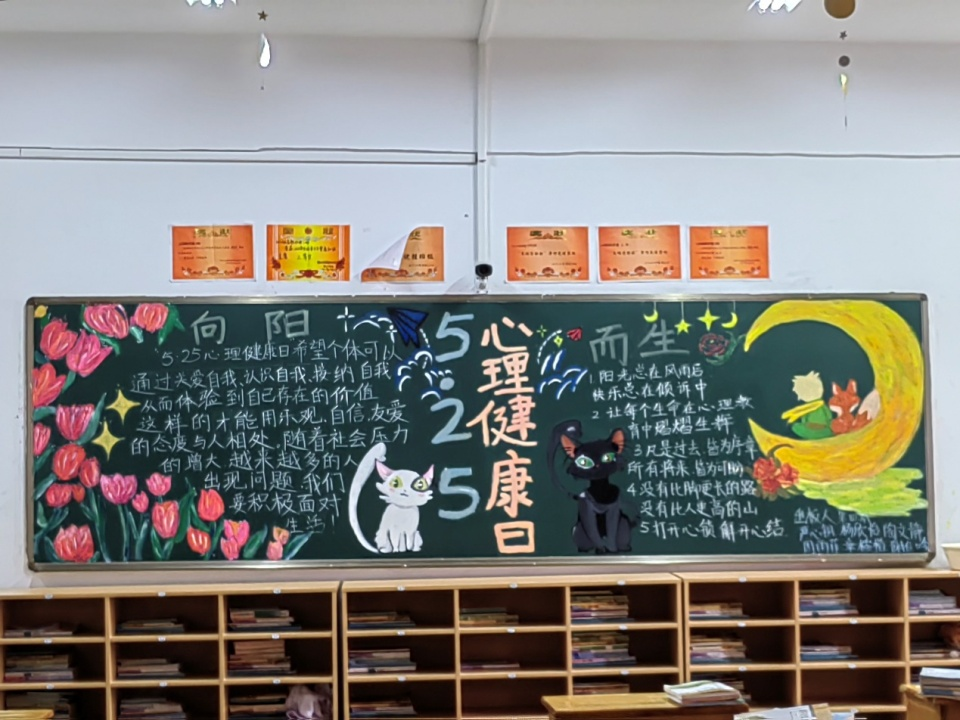 向阳
5·25心理健康日希望个体可以
通过关爱自我、认识自我、接纳自我
从而体验到自己存在的价值
这样的才能用乐观、自信、友爱
的态度与人相处、随着社会压力
的增大、越来越多的人
出现问题、我们
要积极面对
生活!
5·25
心理健康日
而生
1 阳光总在风雨后
快乐总在倾诉中
2 让每个生命在心理教
育中熠熠生辉
3 凡是过去,皆为序章
所有将来,皆为可盼
4 没有比脚更长的路
没有比人更高的山
5 打开心锁 解开心结
出板人